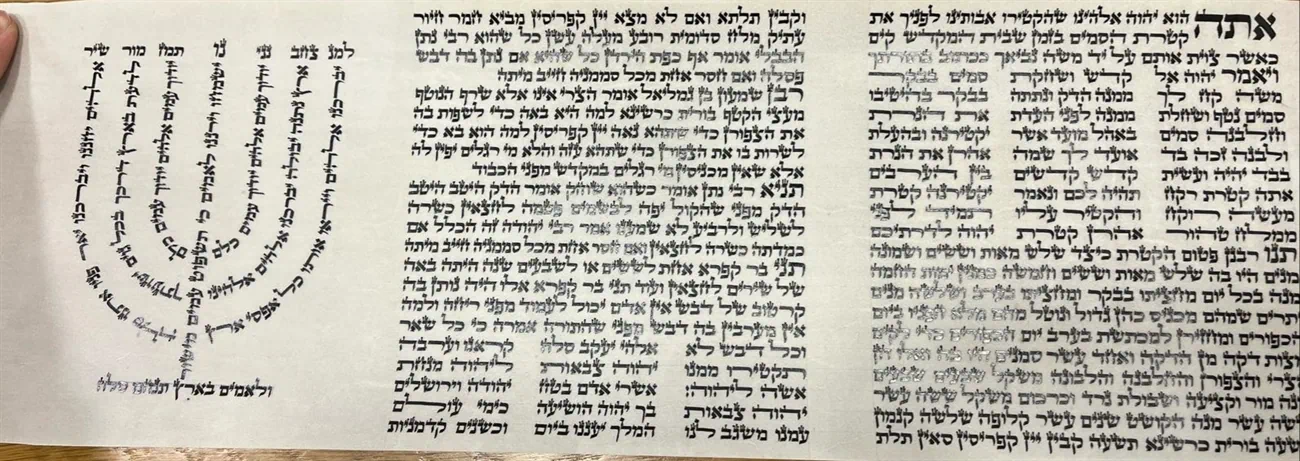 אתה הוא יהוה אלהינו שהקטירו אבותינו לפניך את
קטרת הסמים בזמן שבית המקדש קים
כאשר צוית אותם על יד משה נביאך ככתוב בתורתך
ויאמר יהוה אל קדש ושחקת סמים בבקר
משה קח לך ממנה הדק ונתתה בבקר בהיטיבו
סמים נטף ושחלת ממנה לפני העדת את הנרת
וחלבנה סמים באהל מועד אשר יקטירנה ובהעלת
ולבנה זכה בד אועד לך שמה אהרן את הנרת
בבד יהיה ועשית קדש קדשים בין הערבים
אתה קטרת רקח תהיה לכם ונאמר יקטירנה קטרת
מעשה רוקח והקטיר עליו תמיד לפני
ממלח טהור אהרן קטרת יהוה לדרתיכם
תנו רבנן פטום הקטרת כיצד שלש מאות וששים ושמנה
מנים היו בה שלש מאות וששים וחמשה כמנין ימות החמה
מנה בכל יום מחציתו בבקר ומחציתו בערב ושלשה מנים
יתרים שמהם מכניס כהן גדול ונוטל מהם מלא חפניו ביום
הכפורים ומחזירן למכתשת בערב יום הכפורים כדי לקים
מצות דקה מן הדקה ואחד עשר סמנים היו בה ואלו הן
הצרי והצפורן והחלבנה והלבונה משקל שבעים שבעים
מנה מור וקציעה ושבולת נרד וכרכום משקל ששה עשר
ששה עשר מנה הקושט שנים עשר קלופה שלשה קנמון
תשעה בורית כרשינא תשעה קבין יין קפריסין סאין תלת
וקבין תלתא ואם לא מצא יין קפריסין מביא חמר חיור
עתיק מלח סדומית רובע מעלה עשן כל שהוא רבי נתן
הבבלי אומר אף כפת הירדן כל שהיא אם נתן בה דבש
פסלה ואם חסר אחת מכל סממניה חייב מיתה
רבן שמעון בן גמליאל אומר הצרי אינו אלא שרף הנוטף
מעצי הקטף בורית כרשינא למה היא באה כדי לשפות בה
את הצפורן כדי שתהא נאה יין קפריסין למה הוא בא כדי
לשרות בו את הצפורן כדי שתהא עזה והלא מי רגלים יפין לה
אלא שאין מכניסין מי רגלים במקדש מפני הכבוד
תניא רבי נתן אומר כשהוא שוחק אומר הדק היטב היטב
הדק מפני שהקול יפה לבשמים פטמה לחצאין כשרה
לשליש ולרביע לא שמענו אמר רבי יהודה זה הכלל אם
כמדתה כשרה לחצאין ואם חסר אחת מכל סממניה חייב מיתה
תני בר קפרא אחת לששים או לשבעים שנה היתה באה
של שירים לחצאין ועוד תני בר קפרא אלו היה נותן בה
קרטוב של דבש אין אדם יכול לעמוד מפני ריחה ולמה
אין מערבין בה דבש מפני שהתורה אמרה כי כל שאר
וכל דבש לא אלהי יעקב סלה קראנו וערבה
תקטירו ממנו יהוה צבאות ליהוה מנחת
אשה ליהוה: אשרי אדם בטח יהודה וירושלים
יהוה צבאות בך יהוה הושיעה כימי עולם
עמנו משגב לנו המלך יעננו ביום וכשנים קדמניות
למנצח בנגינת מזמור שיר
אלהים יחננו ויברכנו יאר פניו אתנו סלה
לדעת בארץ דרכך בכל גוים ישועתך
יודוך עמים אלהים יודוך עמים כלם
ישמחו וירננו לאמים כי תשפוט עמים מישור
ולאמים בארץ תנחם סלה
יודוך עמים אלהים יודוך עמים כלם
ארץ נתנה יבולה יברכנו אלהים אלהינו
יברכנו אלהים וייראו אותו כל אפסי ארץ